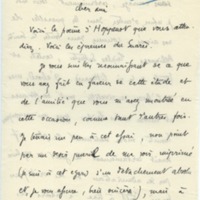 cher ami
Voici le poème d'Hoppenot que vous atten-
diez. Voici les épreuves du Suarès.
Je vous suis très reconnaissant de ce que
vous avez fait en faveur de cette étude et
de l'amitié que vous m'avez montrée en
cette occasion, comme tant d'autres fois.
Je tenais un peu à cet essai, non point
par un vain plaisir de me voir imprimé
(je suis à cet égard d'un détachement absolu
et, je vous assure, bien sincère), mais à